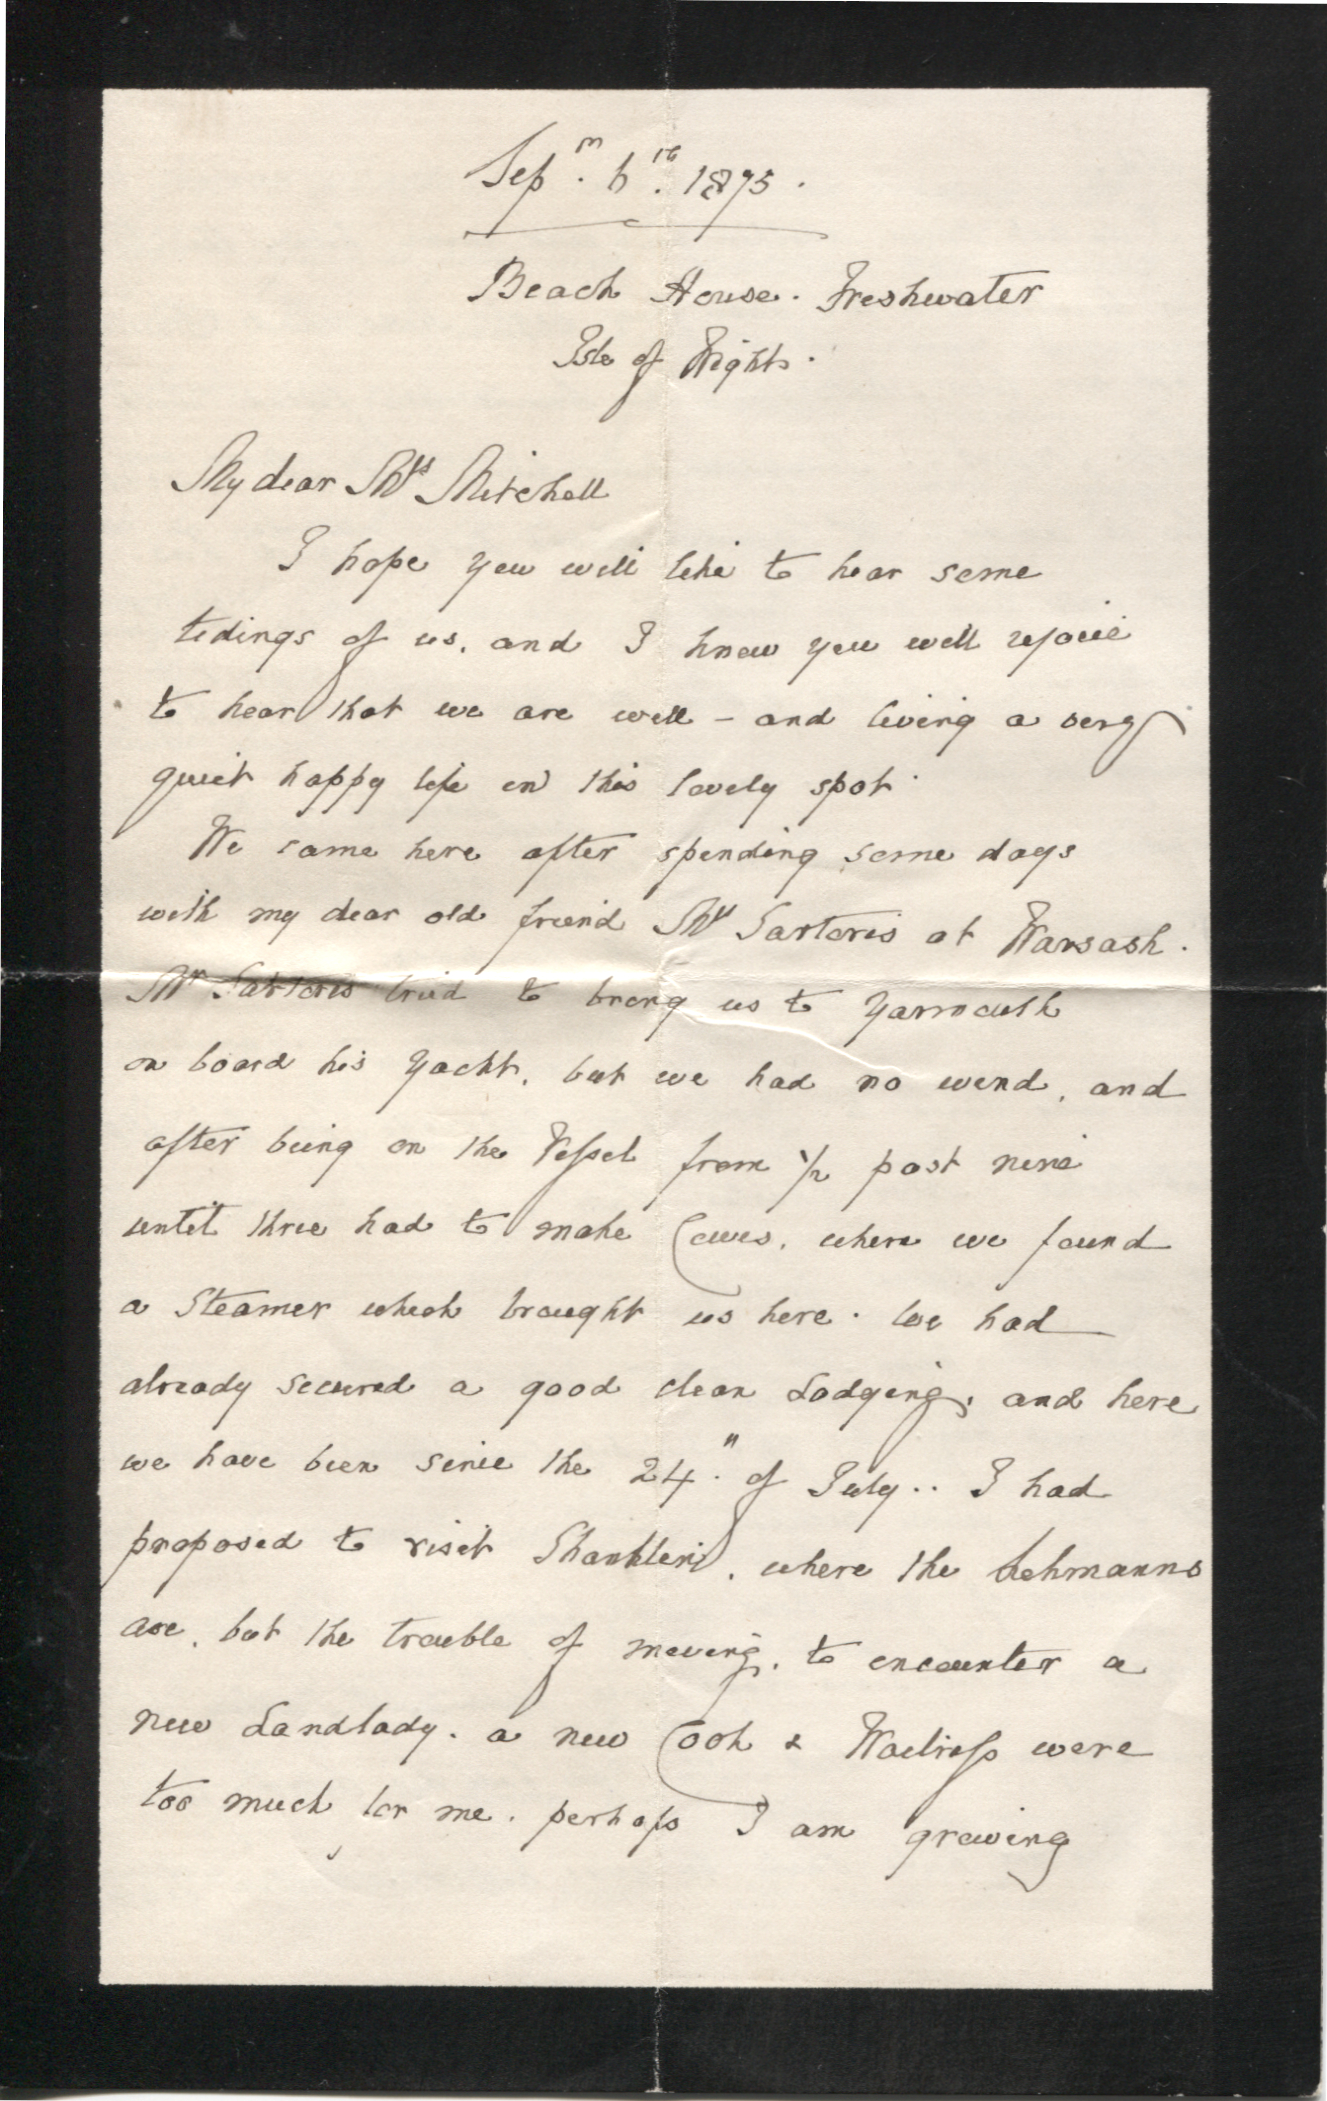 Sepm. 6th. 1875.
Beach House. Freshwater
Isle of Wight.
My dear Mrs Mitchell
I hope you will like to hear some
tidings of us, and I know you will rejoice
to hear that we are well – and living a very
quiet happy life in this lovely spot.
We came here after spending some days
with my dear old friend Mrs Sartoris at Warsash.
Mr Sartoris tried to bring us to Yarmouth
on board his Yacht, but we had no wind, and
after being on the Vessel from 1/2 past nine
until three had to make Cowes, where we found
a Steamer which brought us here. We had
already secured a good clean Lodging, and here
we have been since the 24th. of July.. I had
proposed to visit Shanklin, where the Lehmanns
are, but the trouble of moving, to encounter a
new Landlady. a new Cook & Waitress were
too much for me. perhaps I am growing